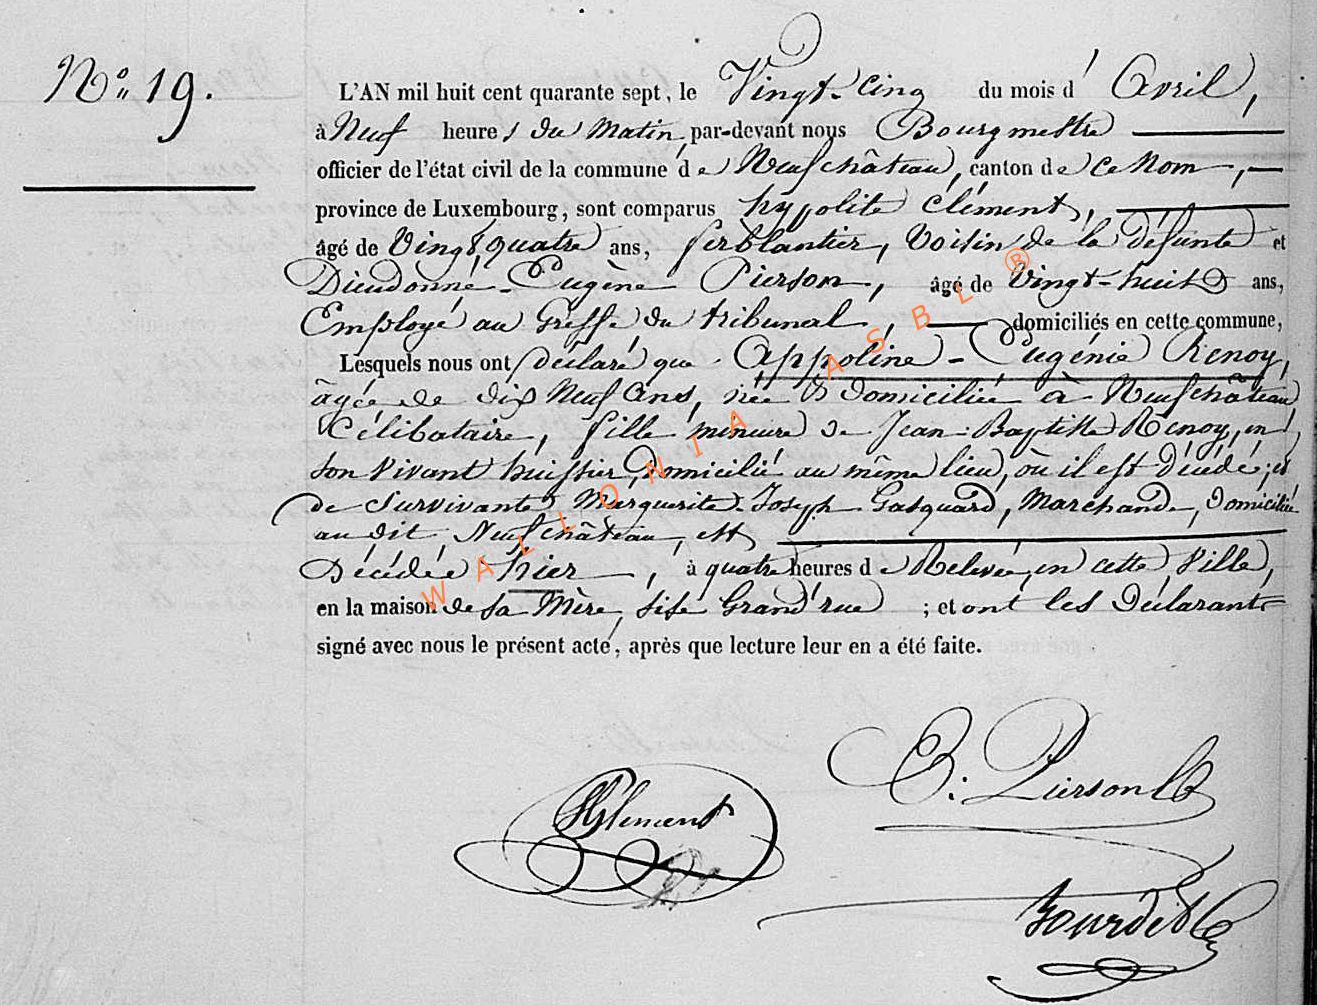 N.º 19.
L'AN mil huit cent quarante sept, le Vingt-Cinq du mois d'Avril,
à Neuf heures du Matin, par-devant nous Bourgmestre
officier de l'état civil de la commune de Neufchâteau, canton de ce Nom,
province de Luxembourg, sont comparus hypolite Clément,
âgé de Vingt quatre ans, ferblantier, Voisin de la défunte et
Dieudonné-Eugène Pierson, âgé de Vingt-huit ans,
Employé au Greffe du tribunal, domiciliés en cette commune,
Lesquels nous ont déclaré que Appoline-Eugénie Renoy,
âgée de dix Neuf Ans, née & domiciliée à Neufchâteau,
Célibataire, fille mineure de Jean-Baptiste Renoy, en
son vivant huissier, domicilié au même lieu, où il est décédé; et
de survivante Marguerite-Joseph Gasquard, Marchande, domiciliée
au dit Neufchâteau, est
Décédée hier, à quatre heures de Relevée, en cette Ville,
en la maison de sa Mère, sise Grand'rue ; et ont les Déclarants
signé avec nous le présent acte, après que lecture leur en a été faite.
E: Pierson
HClement
Bourdet
WALLONIA ASBL ®